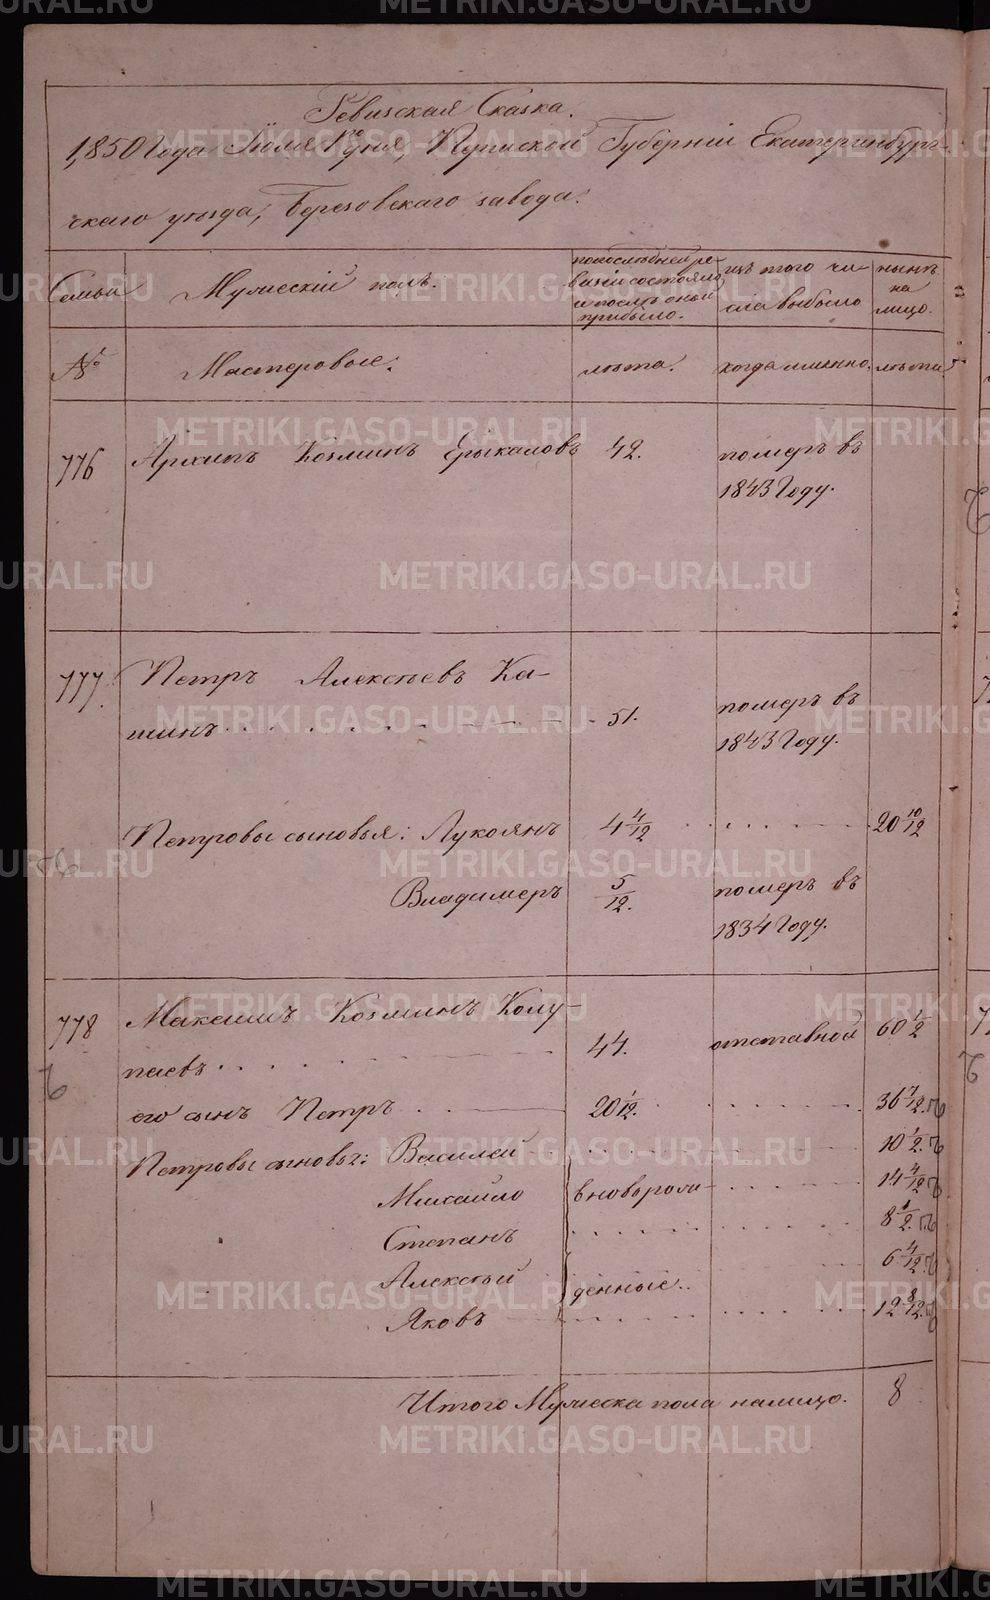 Ревизская Сказка.
1850 Года Іюля 1го дня, Пермской Губерніи Екатеринбург-
скаго уезда, Березовскаго завода.
Семьи
Мужескій полъ.
по последней ре-
визіи состояло
и после оной
прибыло.
изъ того чи-
сла выбыло
ныне
на
лицо.
№
Мастеровые:
лета.
когда именно.
лета.
776
Архипъ Козминъ Ерыкаловъ
42.
померъ въ
1843 Году.
777.
Петръ Алексеевъ Ка-
шинъ
51.
померъ въ
1843 Году.
Петровы сыновья: Лукоянъ
4 4/12
20 10/12
Владимеръ
5/12.
померъ въ
1834 Году.
778
Максимъ Козминъ Колу-
паевъ
44.
отставной
60 1/2
его сынъ Петръ
20 1/12.
36 7/12.
Петровы сыновья: Василей
10 1/2.
Михайло
вновьрож-
14 4/12
Степанъ
8 1/2.
Алексей
денные.
6 4/12.
Яковъ
12 8/12.
Итого Мужеска пола налицо.
8
METRIKI.GASO-URAL.RU